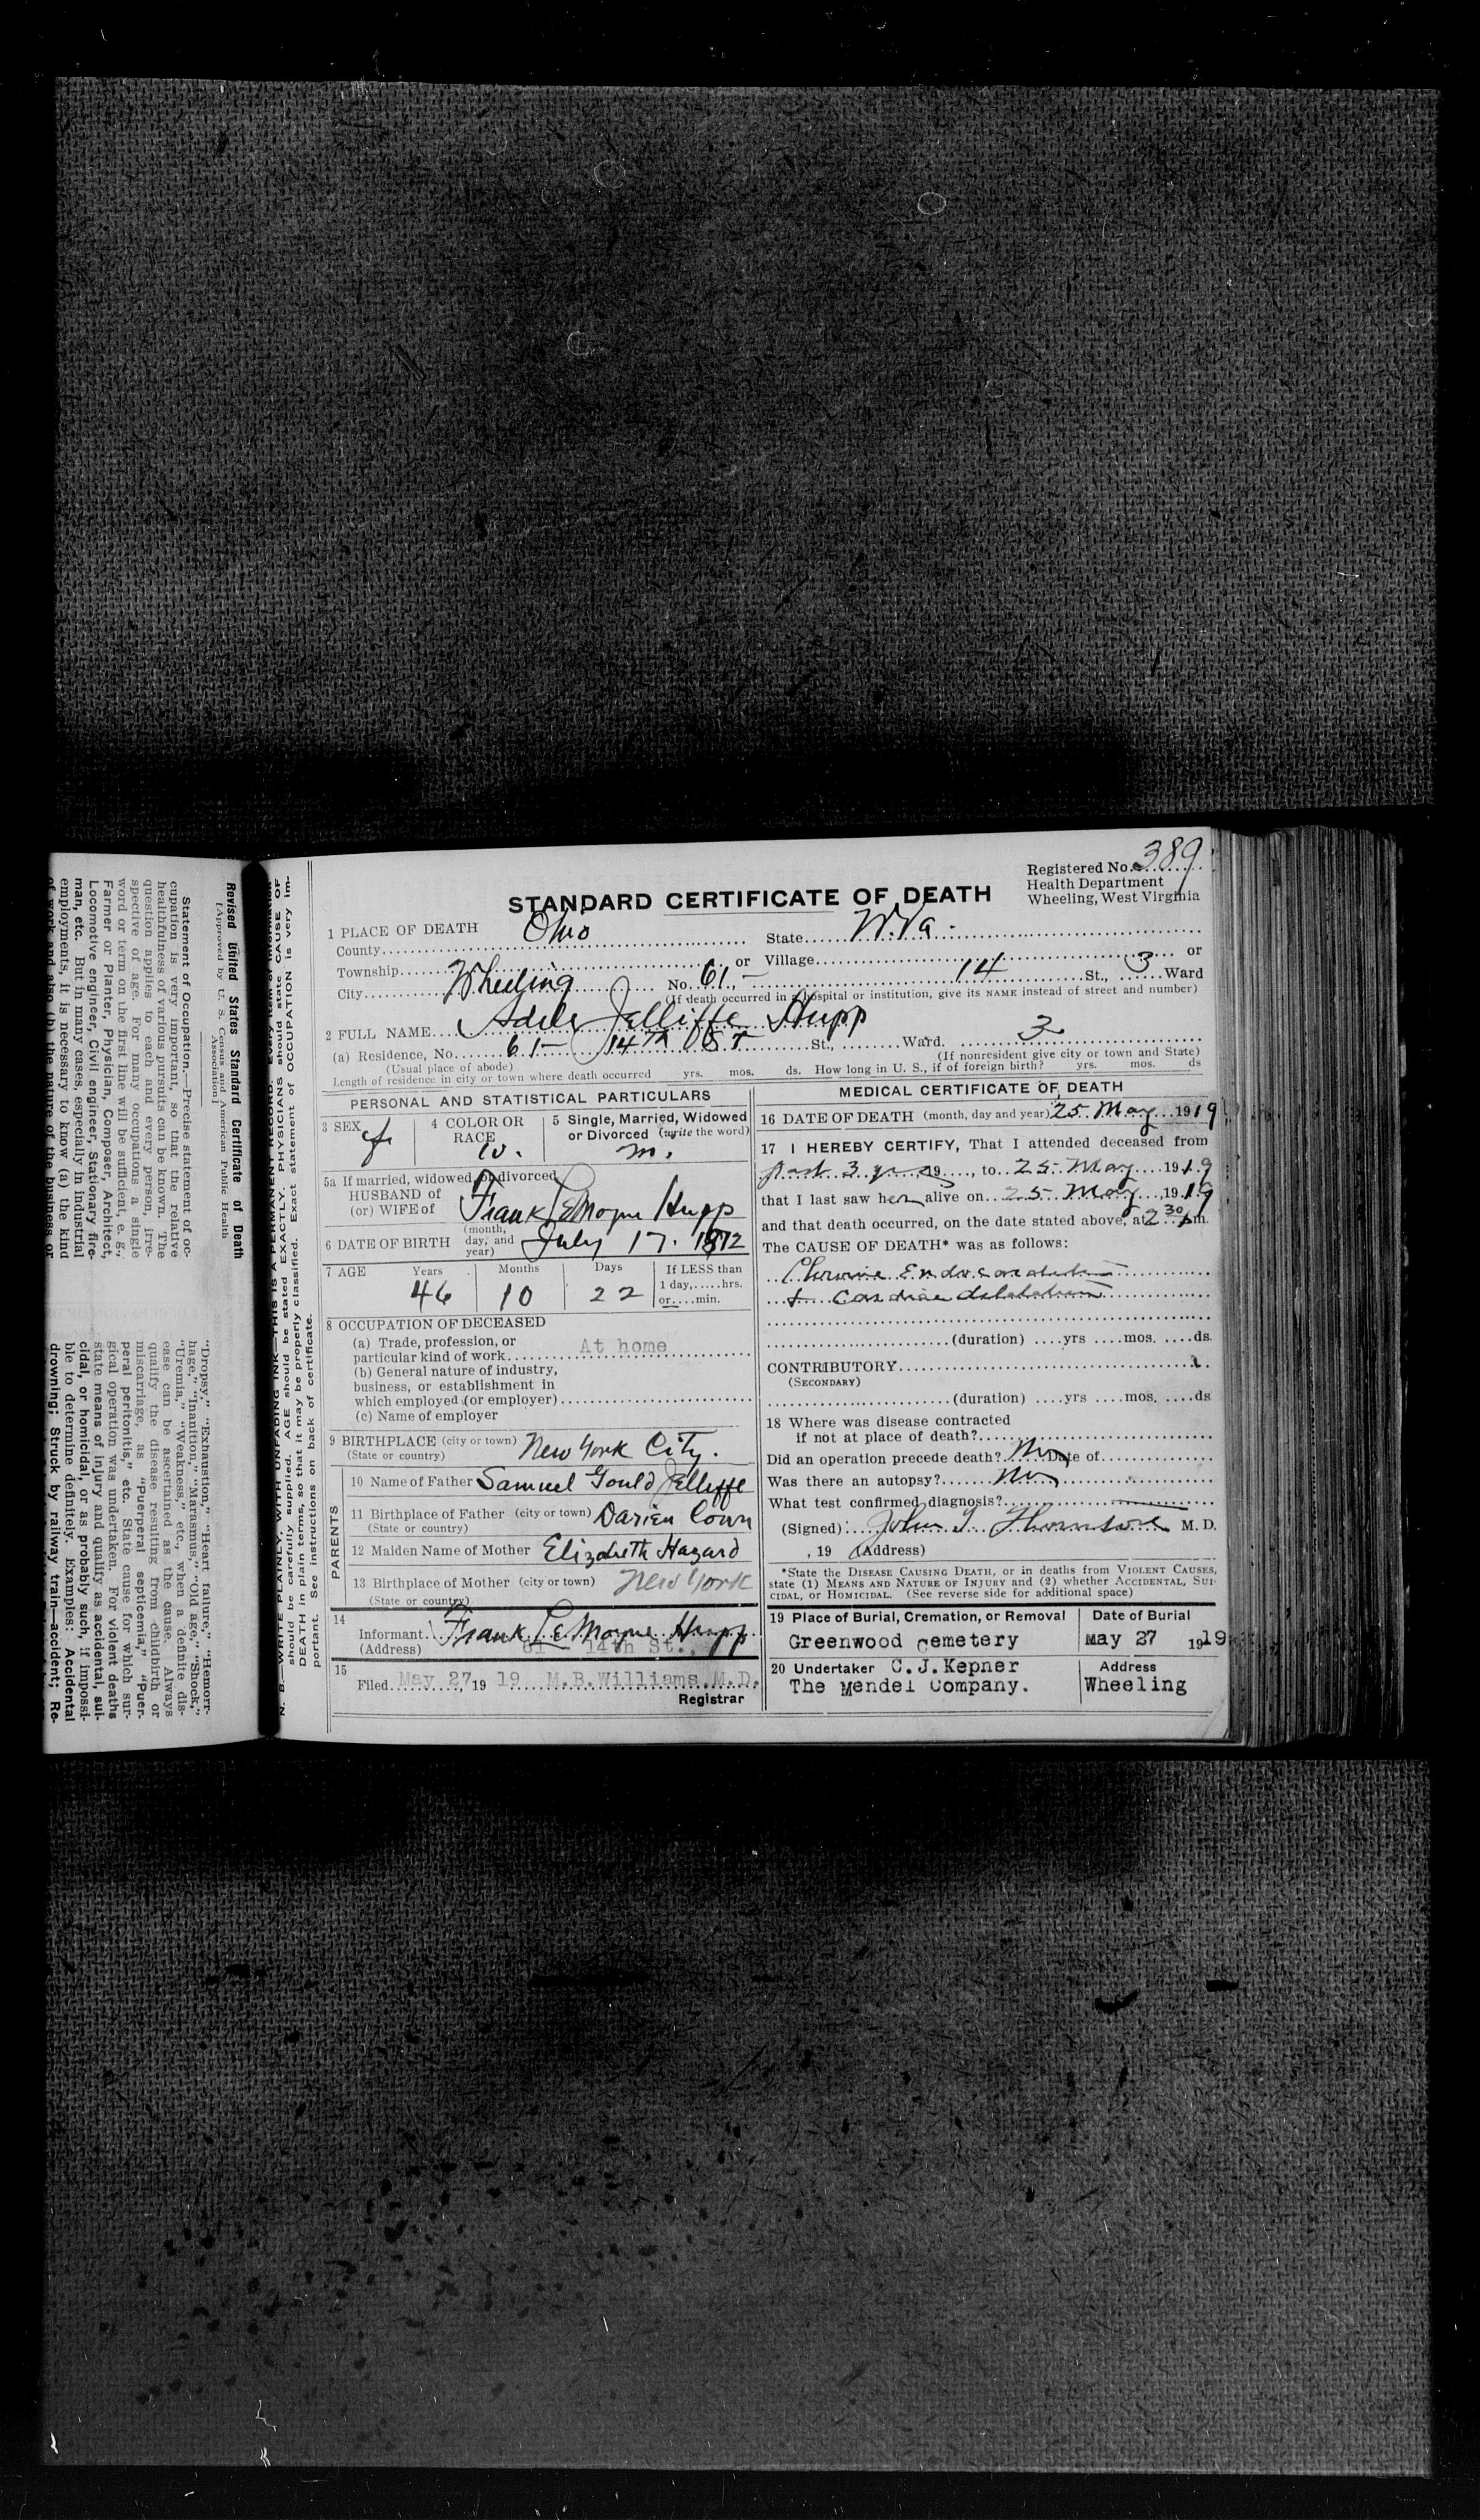 Revised United States Standard Certificate of Death
[Approved by U. S. Census and American Public Health Association]
Statement of Occupation.—Precise statement of oc-
cupation is very important, so that the relative
healthfulness of various pursuits can be known. The
question applies to each and every person, irre-
spective of age. For many occupations a single
word or term on the first line will be sufficient, e. g.,
Farmer or Planter, Physician, Composer, Architect,
Locomotive engineer, Civil engineer, Stationary fire-
man, etc. But in many cases, especially in industrial
employments, it is necessary to know (a) the kind
of work and also (b) the nature of the business or
"Dropsy," "Exhaustion," "Heart failure," "Hemorr-
hage," "Inanition," "Marasmus," "Old age," "Shock,"
"Uremia," "Weakness," etc., when a definite dis-
ease can be ascertained as the cause. Always
qualify the disease resulting from childbirth or
miscarriage, as "Puerperal septicemia," "Puer-
peral peritonitis," etc. State cause for which sur-
gical operation was undertaken. For violent deaths
state means of injury and qualify as accidental, sui-
cidal, or homicidal, or as probably such, if impossi-
ble to determine definitely. Examples: Accidental
drowning; Struck by railway train—accident; Re-
N. B.—WRITE PLAINLY, WITH UNFADING INK—THIS IS A PERMANENT RECORD.
should be carefully supplied. AGE should be stated EXACTLY. PHYSICIANS should state CAUSE OF
DEATH in plain terms, so that it may be properly classified. Exact statement of OCCUPATION is very im-
portant. See instructions on back of certificate.
Registered No. 389
Health Department
Wheeling, West Virginia
STANDARD CERTIFICATE OF DEATH
1 PLACE OF DEATH
County Ohio State W. Va.
Township or Village or
City Wheeling No. 61 14 St., 3 Ward
(If death occurred in a hospital or institution, give its NAME instead of street and number)
2 FULL NAME Adele Jelliffe Hupp
(a) Residence, No. 61 14th St St., Ward. 3
(Usual place of abode) (If nonresident give city or town and State)
Length of residence in city or town where death occurred yrs. mos. ds. How long in U. S., if of foreign birth? yrs. mos. ds
PERSONAL AND STATISTICAL PARTICULARS
3 SEX f
4 COLOR OR RACE W.
5 Single, Married, Widowed or Divorced (write the word) m.
5a If married, widowed or divorced
HUSBAND of
(or) WIFE of Frank LeMoyne Hupp
6 DATE OF BIRTH (month, day, and year) July 17. 1872
7 AGE Years 46 Months 10 Days 22 If LESS than 1 day, hrs. or min.
8 OCCUPATION OF DECEASED
(a) Trade, profession, or
particular kind of work At home
(b) General nature of industry,
business, or establishment in
which employed (or employer)
(c) Name of employer
9 BIRTHPLACE (city or town) New York City.
(State or country)
PARENTS
10 Name of Father Samuel Gould Jelliffe
11 Birthplace of Father (city or town) Darien Conn
(State or country)
12 Maiden Name of Mother Elizabeth Hazard
13 Birthplace of Mother (city or town) New York
(State or country)
14
Informant Frank LeMoyne Hupp
(Address) 61 14th St.,
15
Filed May 27, 19 19 M.B.Williams.M.D.
Registrar
MEDICAL CERTIFICATE OF DEATH
16 DATE OF DEATH (month, day and year) 25 May 1919
17 I HEREBY CERTIFY, That I attended deceased from
past 3 yrs 19, to 25 May 1919
that I last saw her alive on 25 May, 1919
and that death occurred, on the date stated above, at 2 30 pm.
The CAUSE OF DEATH* was as follows:
Chronic Endocarditis
+ Cardiac dilatation
(duration) yrs mos. ds.
CONTRIBUTORY
(SECONDARY)
(duration) yrs mos. ds
18 Where was disease contracted
if not at place of death?
Did an operation precede death? No Date of
Was there an autopsy? No
What test confirmed diagnosis?
(Signed) John Thornton M. D.
, 19 (Address)
*State the DISEASE CAUSING DEATH, or in deaths from VIOLENT CAUSES,
state (1) MEANS AND NATURE OF INJURY and (2) whether ACCIDENTAL, SUI-
CIDAL, or HOMICIDAL. (See reverse side for additional space)
19 Place of Burial, Cremation, or Removal
Greenwood Cemetery
Date of Burial
May 27 1919
20 Undertaker C.J.Kepner
The Mendel Company.
Address
Wheeling